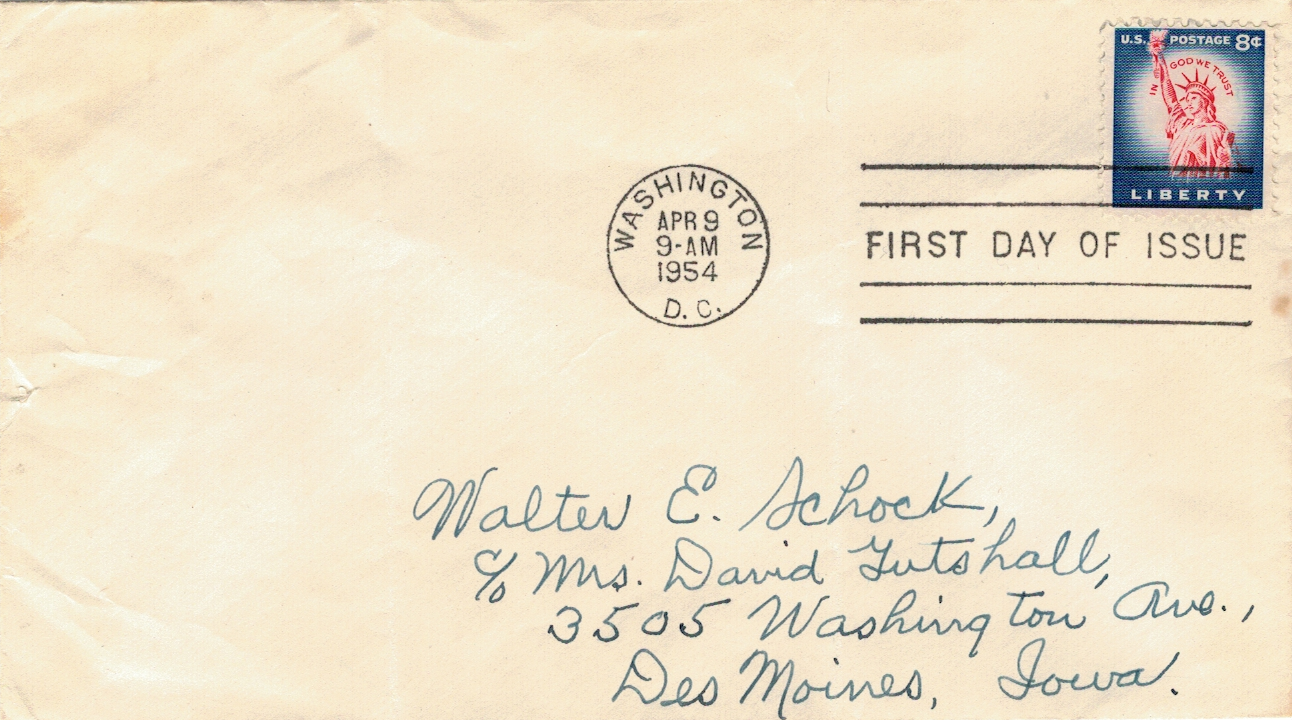 U.S. POSTAGE 8¢
IN GOD WE TRUST
LIBERTY
WASHINGTON
APR 9
9-AM
1954
D. C.
FIRST DAY OF ISSUE
Walter E. Schock,
c/o Mrs. David Gutshall,
3505 Washington Ave.,
Des Moines, Iowa.